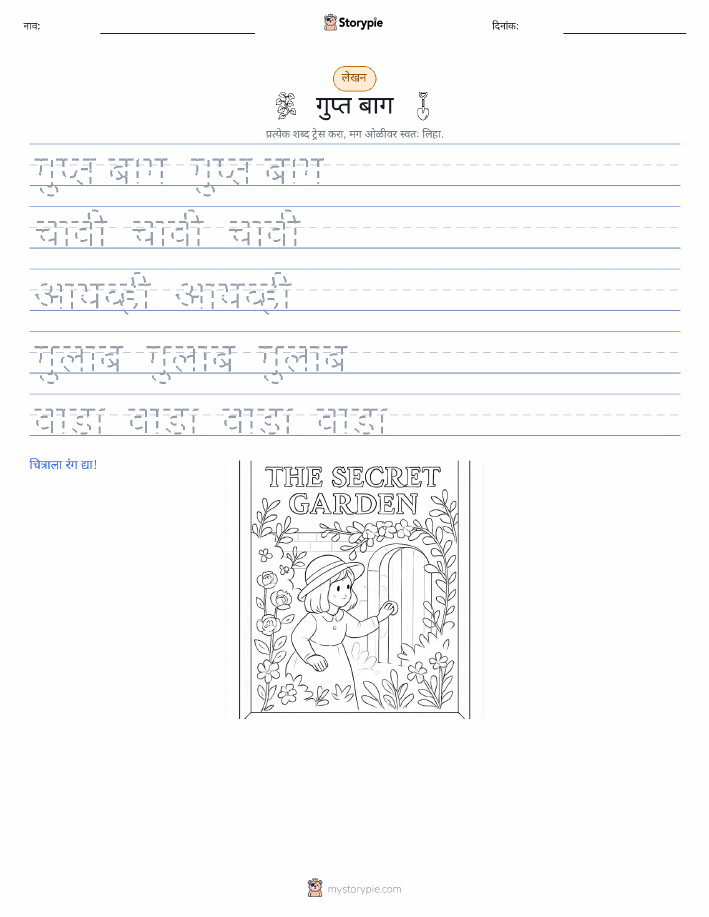 नाव:
Storypie
दिनांक:
लेखन
गुप्त बाग
प्रत्येक शब्द ट्रेस करा, मग ओळीवर स्वतः लिहा.
गुप्त बाग गुप्त बाग
चावी चावी चावी
आयव्ही आयव्ही
गुलाब गुलाब गुलाब
वाडा वाडा वाडा वाडा
चित्राला रंग द्या!
THE SECRET
GARDEN
mystorypie.com